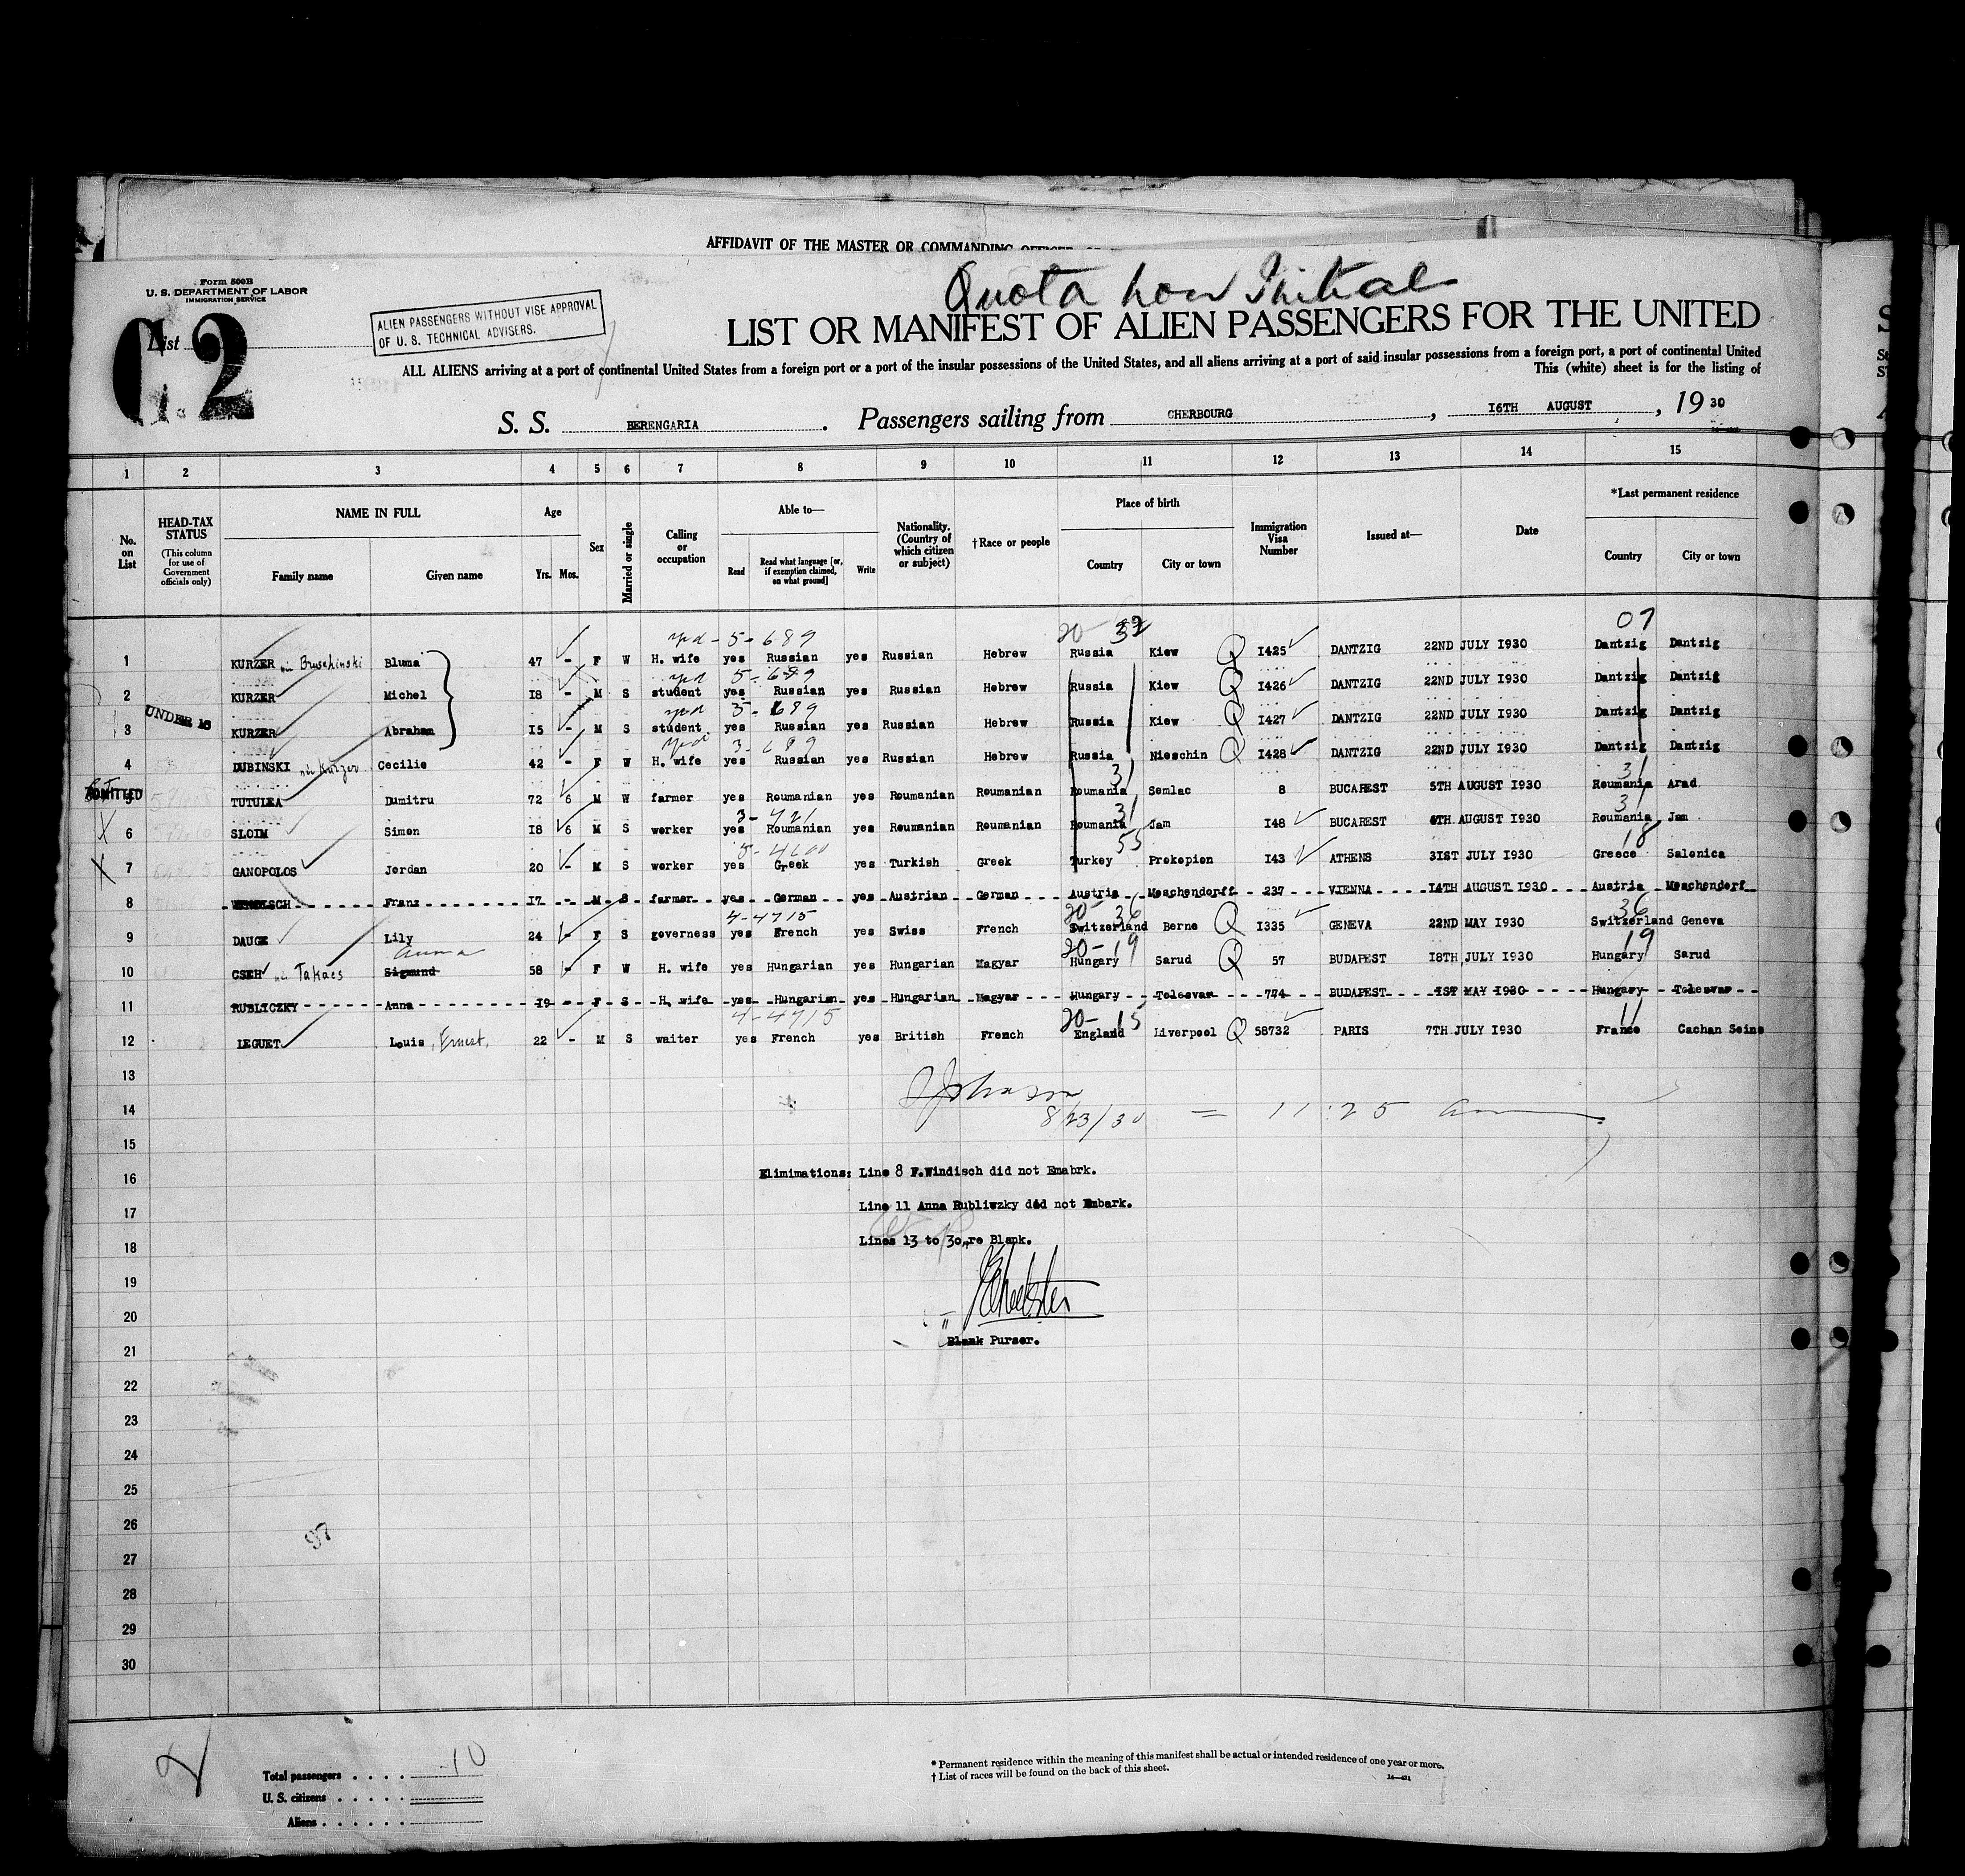 AFFIDAVIT OF THE MASTER OR COMMANDING OFFICER
Quota Initial
Form 500B
U. S. DEPARTMENT OF LABOR
IMMIGRATION SERVICE
List
2
ALIEN PASSENGERS WITHOUT VISE APPROVAL
OF U. S. TECHNICAL ADVISERS.
LIST OR MANIFEST OF ALIEN PASSENGERS FOR THE UNITED
ALL ALIENS arriving at a port of continental United States from a foreign port or a port of the insular possessions of the United States, and all aliens arriving at a port of said insular possessions from a foreign port, a port of continental United
This (white) sheet is for the listing of
S. S. BERENGARIA. Passengers sailing from CHERBOURG, 16TH AUGUST, 19 30
1 2 3 4 5 6 7 8 9 10 11 12 13 14 15
No. on List
HEAD-TAX STATUS (This column for use of Government officials only)
NAME IN FULL
Family name Given name
Age
Yrs. Mos.
Sex
Married or single
Calling or occupation
Able to—
Read Read what language [or, if exemption claimed, on what ground] Write
Nationality. (Country of which citizen or subject)
†Race or people
Place of birth
Country City or town
Immigration Visa Number
Issued at—
Date
*Last permanent residence
Country City or town
5-689 20 07
1 KURZER Bruschinski Bluma 47 - F W H. wife yes Russian yes Russian Hebrew Russia Kiew Q 1425 DANTZIG 22ND JULY 1930 Dantzig Dantzig
5-689
2 KURZER Michel 18 - M S student yes Russian yes Russian Hebrew Russia Kiew Q 1426 DANTZIG 22ND JULY 1930 Dantzig Dantzig
UNDER 16 689
3 KURZER Abraham 15 - M S student yes Russian yes Russian Hebrew Russia Kiew Q 1427 DANTZIG 22ND JULY 1930 Dantzig Dantzig
4 DUBINSKI née Kurzer Cecilie 42 - F W H. wife yes Russian yes Russian Hebrew Russia Nieschin Q 1428 DANTZIG 22ND JULY 1930 Dantzig Dantzig
ADMITTED 31 31
5 TUTULEA Dumitru 72 6 M W farmer yes Roumanian yes Roumanian Roumanian Roumania Semlac 8 BUCAREST 5TH AUGUST 1930 Roumania Arad
3-721 31 31
6 SLOIM Simon 18 6 M S worker yes Roumanian yes Roumanian Roumanian Roumania Jam 148 BUCAREST 4TH AUGUST 1930 Roumania Jam
5-4600 55 18
7 GANOPOLOS Jordan 20 - M S worker yes Greek yes Turkish Greek Turkey Prokopion 143 ATHENS 31ST JULY 1930 Greece Salonica
8 Franz 17 - M S farmer yes German yes Austrian German Austria Meschendorff 237 VIENNA 14TH AUGUST 1930 Austria Meschendorf
4-4715 20-36 36
9 DAUGE Lily 24 - F S governess yes French yes Swiss French Switzerland Berne Q 1335 GENEVA 22ND MAY 1930 Switzerland Geneva
Anna 20-19 19
10 CSEH née Takacs Sigmund 58 - F W H. wife yes Hungarian yes Hungarian Magyar Hungary Sarud Q 57 BUDAPEST 18TH JULY 1930 Hungary Sarud
11 RUBLICZKY Anna 19 - F S H. wife yes Hungarian yes Hungarian Magyar Hungary Tolesvar 774 BUDAPEST 1ST MAY 1930 Hungary Tolesvar
4-4715 20-15 11
12 LEGUET Louis Ernest, 22 - M S waiter yes French yes British French England Liverpool Q 58732 PARIS 7TH JULY 1930 France Cachan Seine
13
14 8/23/30 = 11:25 am
15
16 Elimimations: Line 8 F.Windisch did not Emabrk.
17 Line 11 Anna Rubliwzky did not Embark.
18 Lines 13 to 30 re Blank.
19
20
21 Blank Purser.
22
23
24
25
26
97
27
28
29
30
2
Total passengers . . . . 10
U. S. citizens . . . . .
Aliens . . . . .
* Permanent residence within the meaning of this manifest shall be actual or intended residence of one year or more.
† List of races will be found on the back of this sheet.